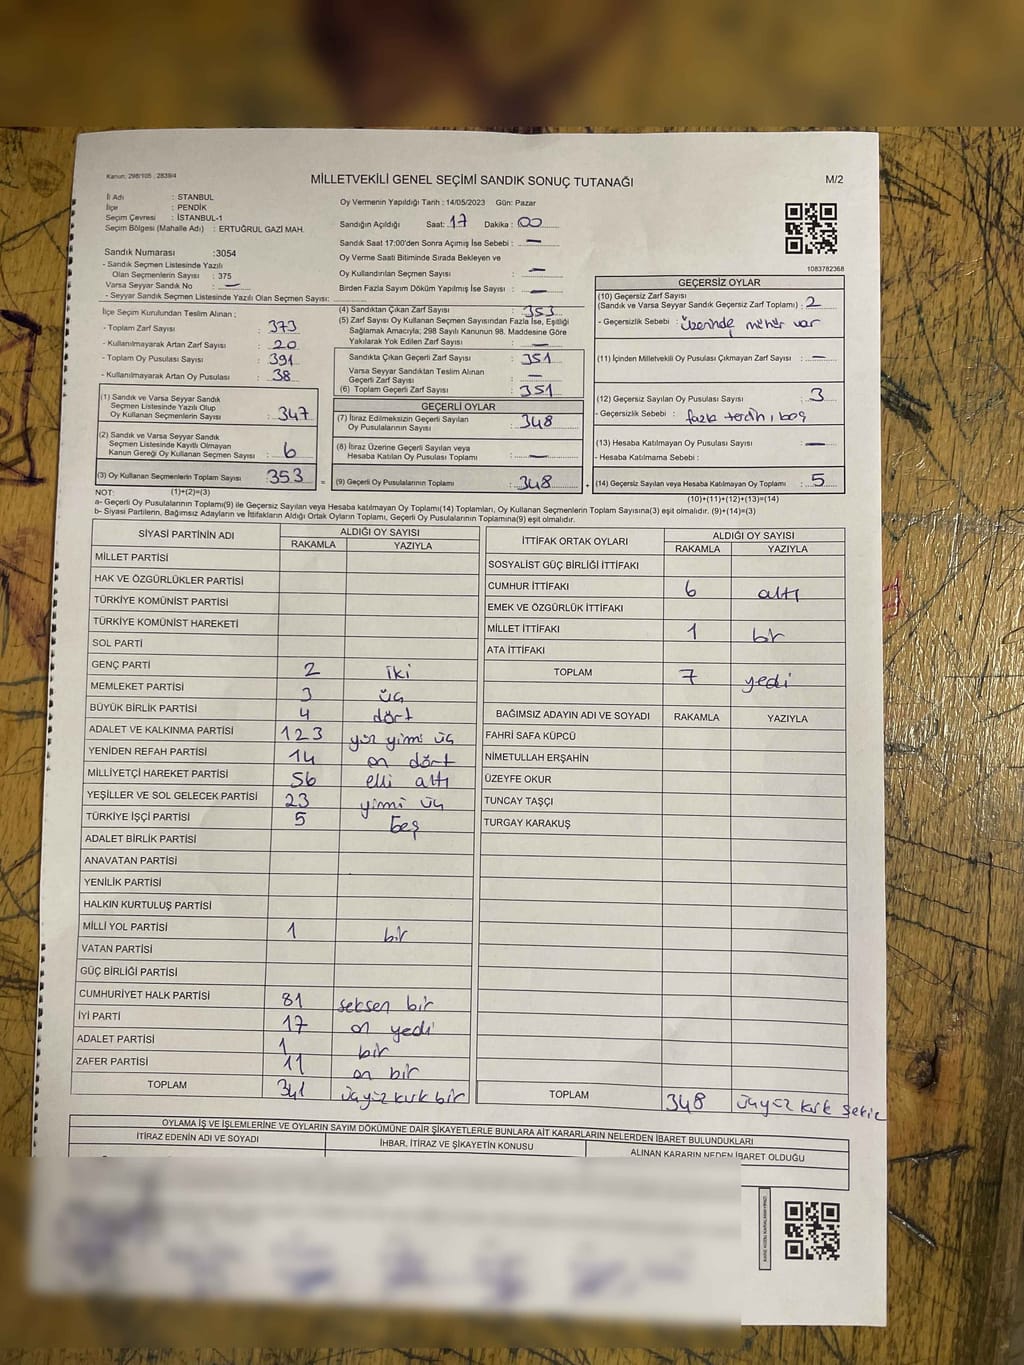 Kanun: 298/105 ; 2839/4
MİLLETVEKİLİ GENEL SEÇİMİ SANDIK SONUÇ TUTANAĞI
M/2
İl Adı : STANBUL
İlçe : PENDİK
Seçim Çevresi : İSTANBUL-1
Seçim Bölgesi (Mahalle Adı) : ERTUĞRUL GAZİ MAH.
Oy Vermenin Yapıldığı Tarih : 14/05/2023 Gün: Pazar
Sandığın Açıldığı Saat: 17 Dakika : 00
Sandık Saat 17:00'den Sonra Açımış İse Sebebi : —
Oy Verme Saati Bitiminde Sırada Bekleyen ve
Oy Kullandırılan Seçmen Sayısı : —
Birden Fazla Sayım Döküm Yapılmış İse Sayısı : —
1083782368
Sandık Numarası :3054
- Sandık Seçmen Listesinde Yazılı
Olan Seçmenlerin Sayısı : 375
Varsa Seyyar Sandık No : —
- Seyyar Sandık Seçmen Listesinde Yazılı Olan Seçmen Sayısı:
İlçe Seçim Kurulundan Teslim Alınan ;
- Toplam Zarf Sayısı : 373
- Kullanılmayarak Artan Zarf Sayısı : 20
- Toplam Oy Pusulası Sayısı : 391
- Kullanılmayarak Artan Oy Pusulası : 38
(1) Sandık ve Varsa Seyyar Sandık
Seçmen Listesinde Yazılı Olup
Oy Kullanan Seçmenlerin Sayısı : 347
(2) Sandık ve Varsa Seyyar Sandık
Seçmen Listesinde Kayıtlı Olmayan
Kanun Gereği Oy Kullanan Seçmen Sayısı : 6
(3) Oy Kullanan Seçmenlerin Toplam Sayısı : 353
(4) Sandıktan Çıkan Zarf Sayısı : 353
(5) Zarf Sayısı Oy Kullanan Seçmen Sayısından Fazla İse, Eşitliği
Sağlamak Amacıyla; 298 Sayılı Kanunun 98. Maddesine Göre
Yakılarak Yok Edilen Zarf Sayısı : —
Sandıkta Çıkan Geçerli Zarf Sayısı : 351
Varsa Seyyar Sandıktan Teslim Alınan
Geçerli Zarf Sayısı : —
(6) Toplam Geçerli Zarf Sayısı : 351
GEÇERLİ OYLAR
(7) İtiraz Edilmeksizin Geçerli Sayılan
Oy Pusulalarının Sayısı : 348
(8) İtiraz Üzerine Geçerli Sayılan veya
Hesaba Katılan Oy Pusulası Toplamı : —
= (9) Geçerli Oy Pusulalarının Toplamı : 348
GEÇERSİZ OYLAR
(10) Geçersiz Zarf Sayısı
(Sandık ve Varsa Seyyar Sandık Geçersiz Zarf Toplamı) : 2
- Geçersizlik Sebebi : üzerinde mühür var
(11) İçinden Milletvekili Oy Pusulası Çıkmayan Zarf Sayısı : —
(12) Geçersiz Sayılan Oy Pusulası Sayısı : 3
- Geçersizlik Sebebi : fazla tercih, boş
(13) Hesaba Katılmayan Oy Pusulası Sayısı : —
- Hesaba Katılmama Sebebi :
+ (14) Geçersiz Sayılan veya Hesaba Katılmayan Oy Toplamı : 5
NOT: (1)+(2)=(3)
(10)+(11)+(12)+(13)=(14)
a- Geçerli Oy Pusulalarının Toplamı(9) ile Geçersiz Sayılan veya Hesaba katılmayan Oy Toplamı(14) Toplamları, Oy Kullanan Seçmenlerin Toplam Sayısına(3) eşit olmalıdır. (9)+(14)=(3)
b- Siyasi Partilerin, Bağımsız Adayların ve İttifakların Aldığı Ortak Oyların Toplamı, Geçerli Oy Pusulalarının Toplamına(9) eşit olmalıdır.
SİYASİ PARTİNİN ADI ALDIĞI OY SAYISI
RAKAMLA YAZIYLA
MİLLET PARTİSİ
HAK VE ÖZGÜRLÜKLER PARTİSİ
TÜRKİYE KOMÜNİST PARTİSİ
TÜRKİYE KOMÜNİST HAREKETİ
SOL PARTİ
GENÇ PARTİ 2 iki
MEMLEKET PARTİSİ 3 üç
BÜYÜK BİRLİK PARTİSİ 4 dört
ADALET VE KALKINMA PARTİSİ 123 yüz yimi üç
YENİDEN REFAH PARTİSİ 14 on dört
MİLLİYETÇİ HAREKET PARTİSİ 56 elli altı
YEŞİLLER VE SOL GELECEK PARTİSİ 23 yimi üç
TÜRKİYE İŞÇİ PARTİSİ 5 beş
ADALET BİRLİK PARTİSİ
ANAVATAN PARTİSİ
YENİLİK PARTİSİ
HALKIN KURTULUŞ PARTİSİ
MİLLİ YOL PARTİSİ 1 bir
VATAN PARTİSİ
GÜÇ BİRLİĞİ PARTİSİ
CUMHURİYET HALK PARTİSİ 81 seksen bir
İYİ PARTİ 17 on yedi
ADALET PARTİSİ 1 bir
ZAFER PARTİSİ 11 on bir
TOPLAM 341 üçyüz kırk bir
İTTİFAK ORTAK OYLARI ALDIĞI OY SAYISI
RAKAMLA YAZIYLA
SOSYALİST GÜÇ BİRLİĞİ İTTİFAKI
CUMHUR İTTİFAKI 6 altı
EMEK VE ÖZGÜRLÜK İTTİFAKI
MİLLET İTTİFAKI 1 bir
ATA İTTİFAKI
TOPLAM 7 yedi
BAĞIMSIZ ADAYIN ADI VE SOYADI RAKAMLA YAZIYLA
FAHRİ SAFA KÜPCÜ
NİMETULLAH ERŞAHİN
ÜZEYFE OKUR
TUNCAY TAŞÇI
TURGAY KARAKUŞ
TOPLAM 348 üçyüz kırk sekiz
OYLAMA İŞ VE İŞLEMLERİNE VE OYLARIN SAYIM DÖKÜMÜNE DAİR ŞİKAYETLERLE BUNLARA AİT KARARLARIN NELERDEN İBARET BULUNDUKLARI
İTİRAZ EDENİN ADI VE SOYADI İHBAR, İTİRAZ VE ŞİKAYETİN KONUSU ALINAN KARARIN NEDEN İBARET OLDUĞU